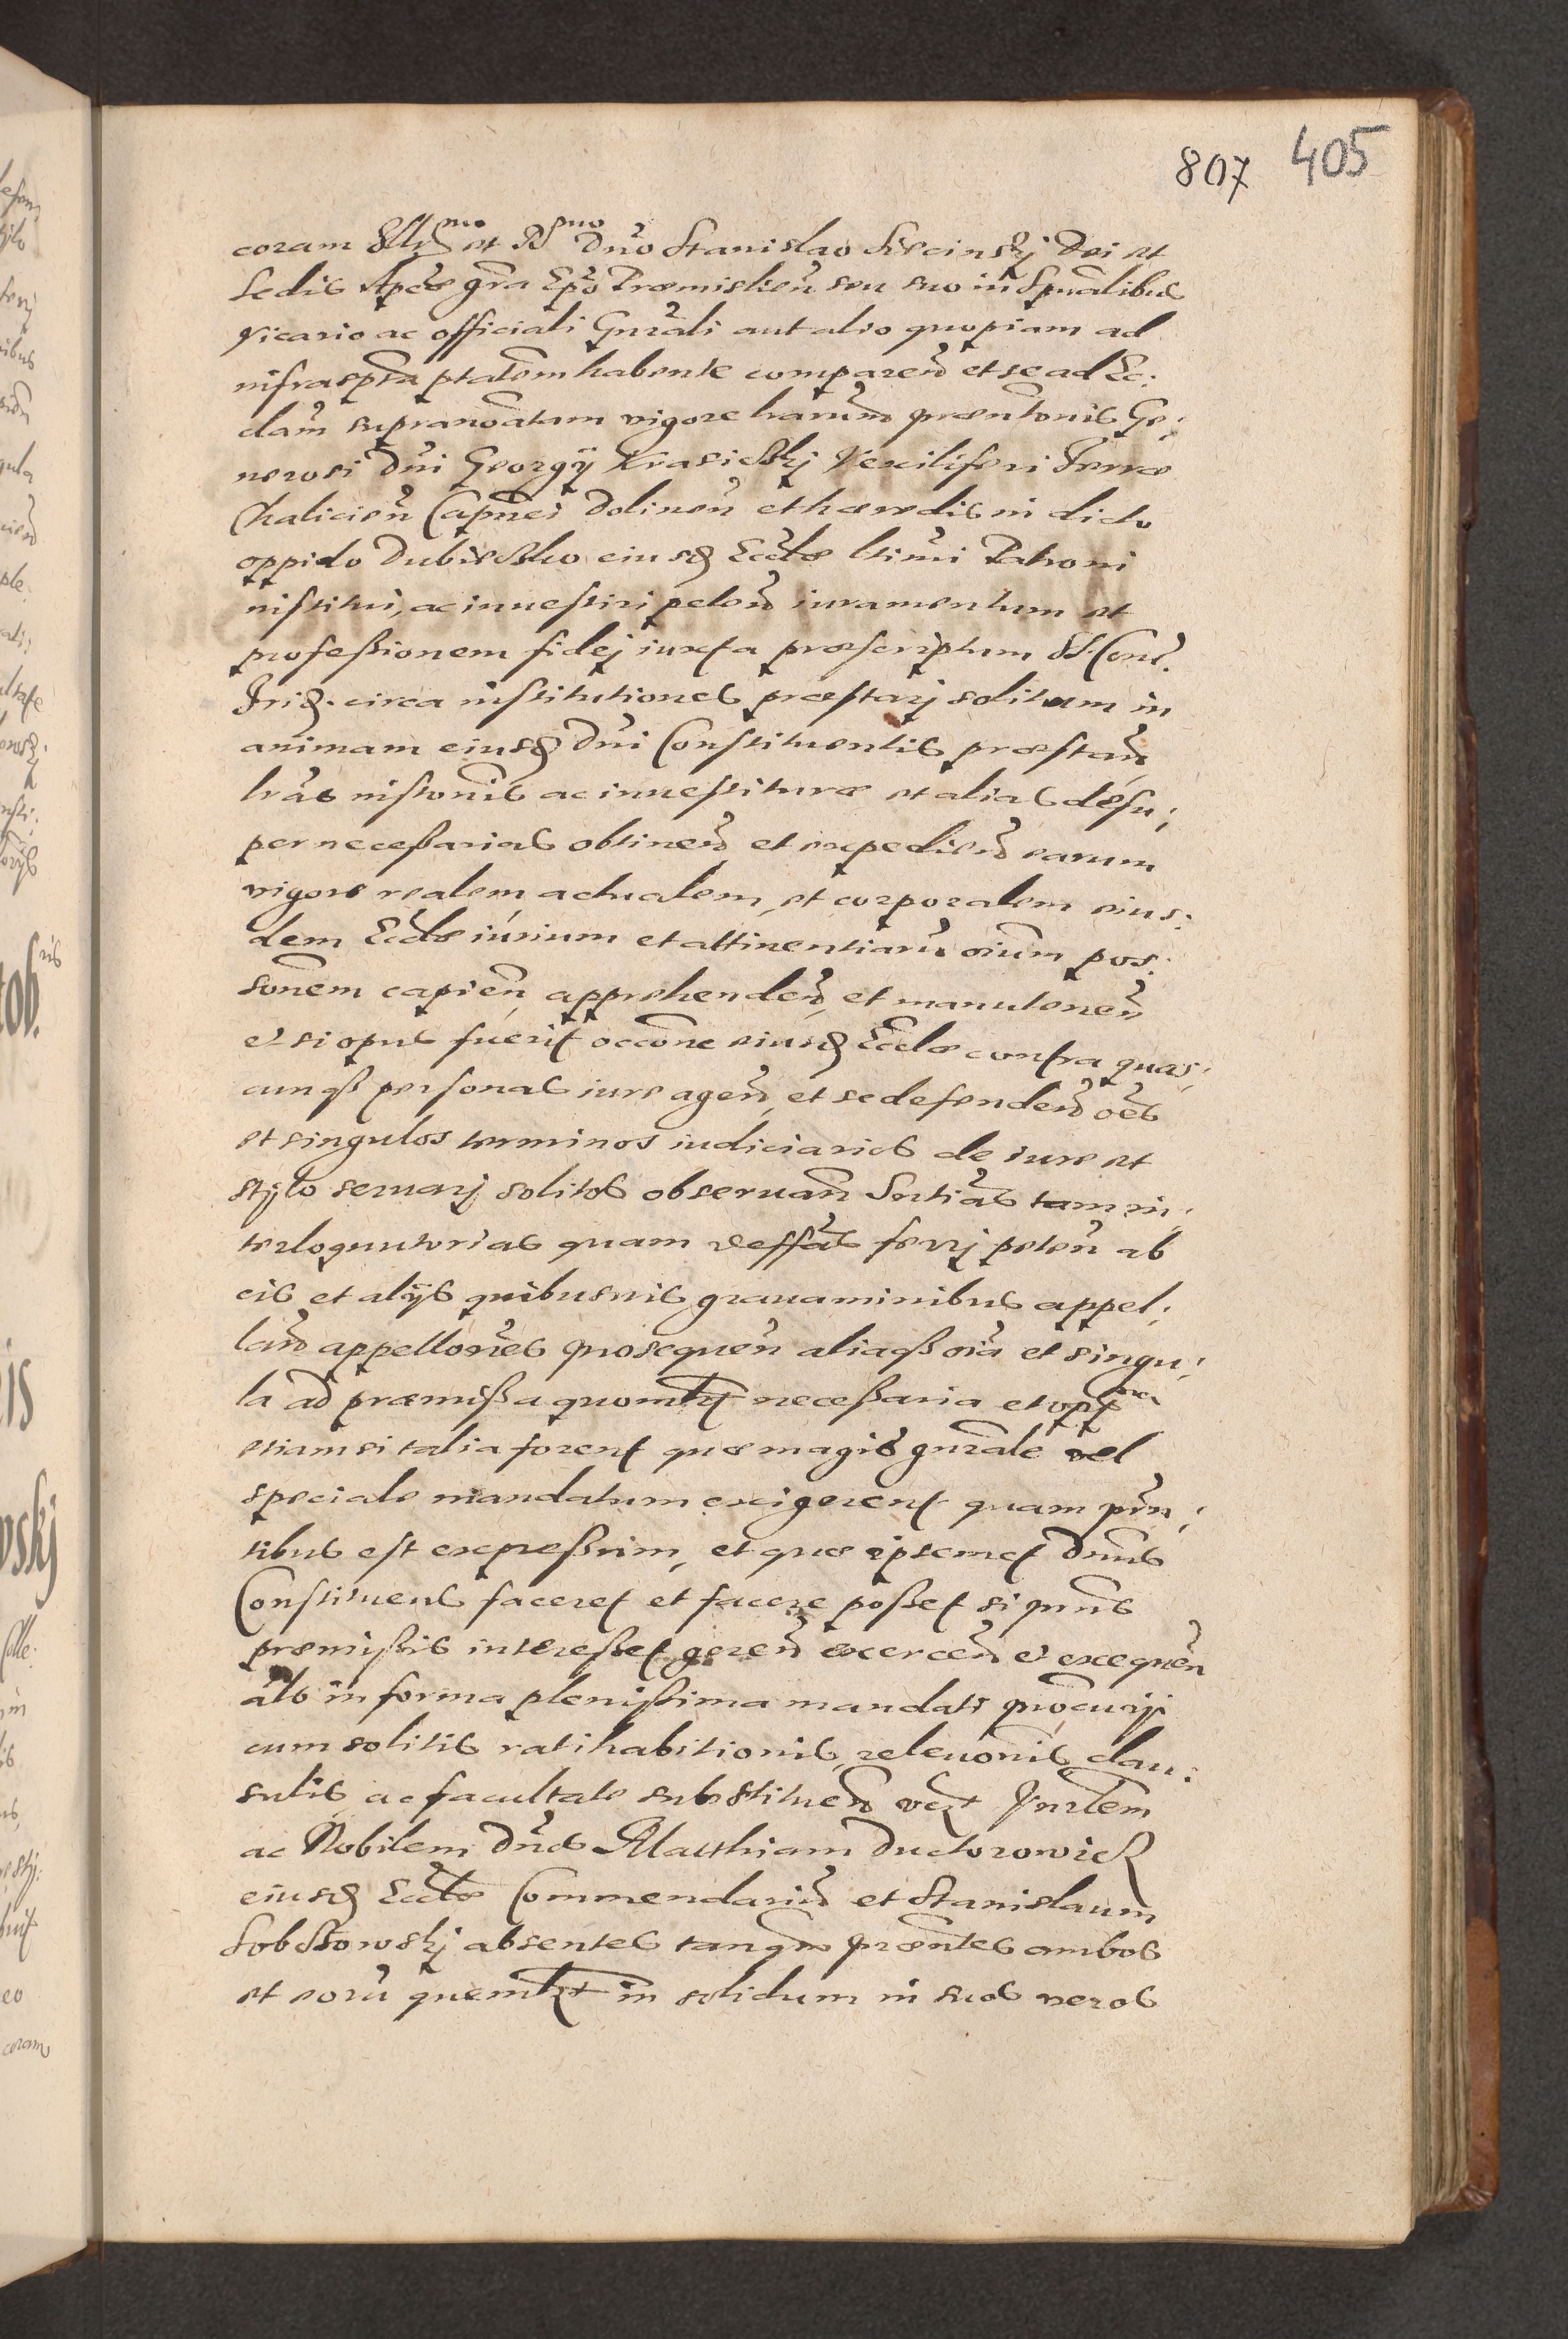 807 405
coram Illr̃mo et Rssmo Dño Stanislao Siecinskj Dei et
Sedis Apcæ gr̃a Epõ Præmislieñ seu suo in Spũalibus
Vicario ac officiali Gnr̃ali aut alio quopiam ad
infrasp̃ta ptatẽm habente compareñd et se ad Ec:
clam̃ supranõatam vigore harum̃ præntonis Ge:
nerosi Dñi Georgij Krasicskj Vexiliferi Terræ
Chalicieñ Capñei Dolineñ et hæredis in dicto
oppido Dubiecsko eiusd Eccĺæ ltimi Patroni
institui, ac inuestiri peteñd iuramentum et
profeßionem fidej iuxta præscriptum SS. Conc.
Trid. circa institutiones præstarj solitum in
animam eiusd Dñi Constituentis præstañd
lrãs instonis ac inuestituræ et alias désu:
per neceßarias obtineñd et expedieñd earum
vigore realem actualem, et corporalem eius:
dem Eccĺæ iúrium et attinentiarũ oĩum pos:
sonẽm capieñ, apprehendeñd, et manuteneñ
et si opus fúerit occõne eiusd Eccĺæ contra quas:
cunqß personas iure ageñd, et se defendeñd oẽs
et singulos terminos iudiciarios de iure et
stylo seruarj solitos obseruañ Sntiãs tam in:
terloquutorias quam deffãs ferrj peteñ ab
eis et alijs quibusuis grauaminibus appel:
lañd appellones prosequeñ aliaqß oĩa et singu:
la ad præmißa quomlt neceßaria et optna
etiamsi talia forent quæ magis gnrãle vel
speciale mandatum exigerent quam prñ:
tibus est expreßum, et quæ ipsemet Dnũs
Constituens faceret et facere poßet si prñs
præmißis intereßet gereñd exerceñd et exequeñ
als in forma plenißima mandati procurij
cum solitis ratihabitionis, releuonis, clau:
sulis, ac facultate substitueñd vcȝt Hnrlem
ac Nobilem Dños Matthiam Ductorowick
eiusd Eccĺæ Commendariũ et Stanislaum
Sobssowskj absentes tanqm præñtes ambos
et eorũ quemlȝt in solidum in suos veros